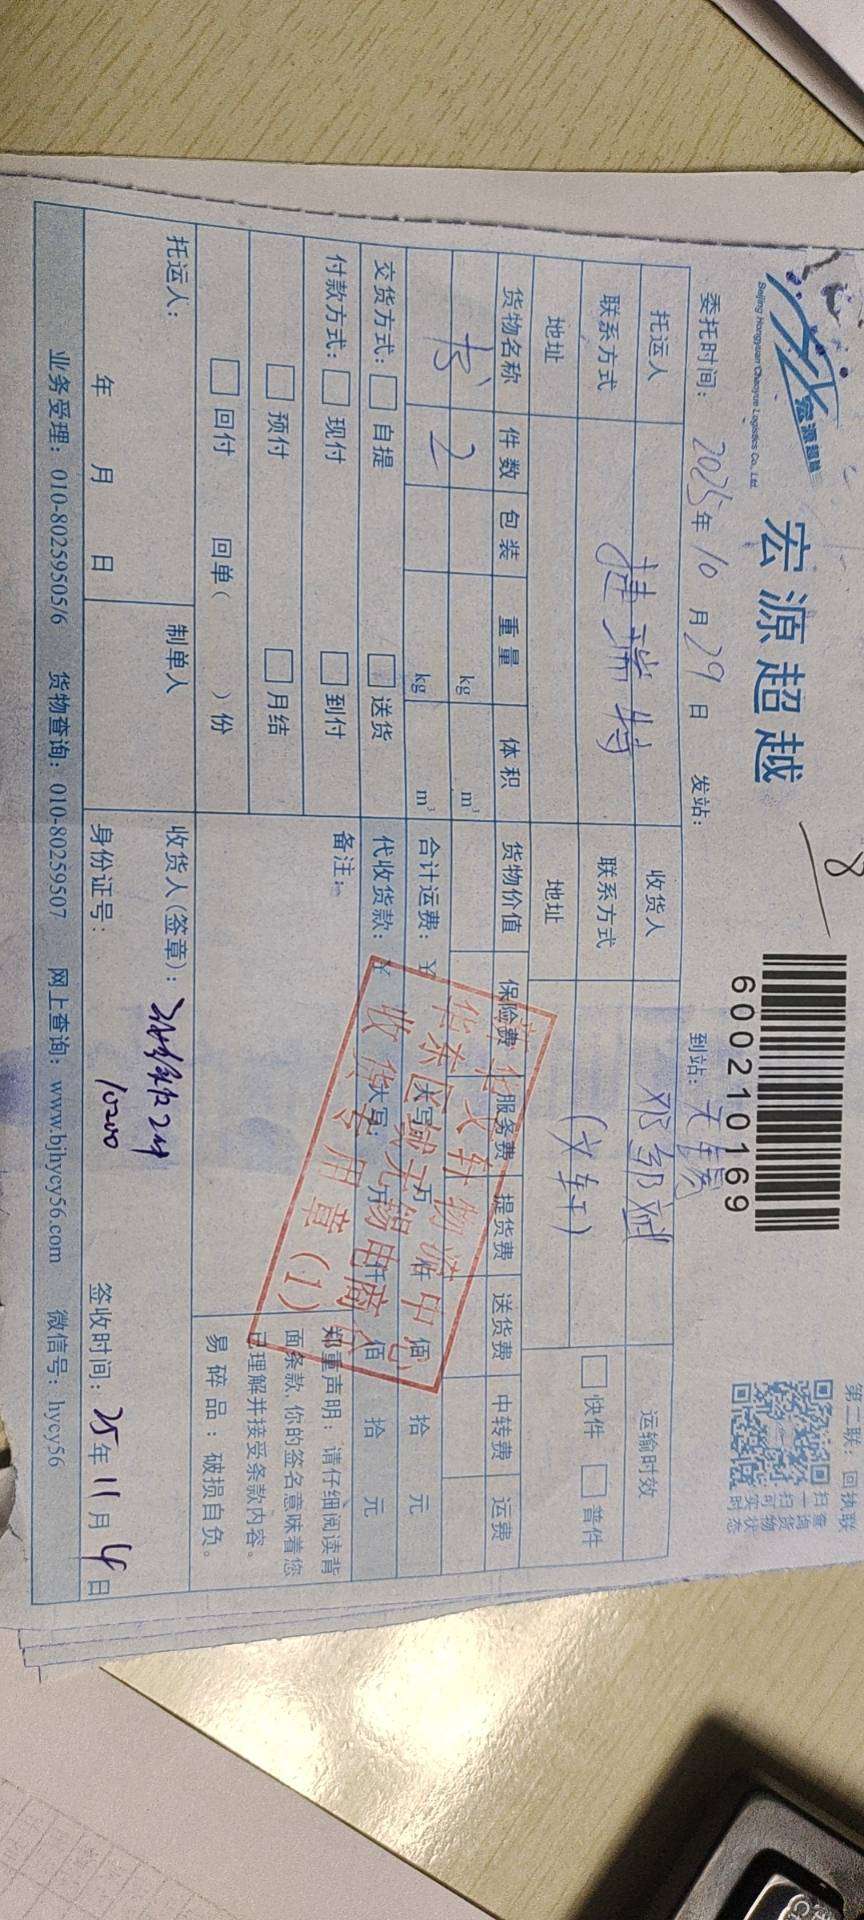 第二联：回执联
宏源超越
Beijing Hongyuan Chaoyue Logistics Co., Ltd.
宏源超越
8
600210169
扫一扫
查询货物
可实时状态
委托时间：2025年10月29日 发站： 到站：无锡
托运人 捷瑞特 收货人 邓邹斌 运输时效
联系方式 联系方式 (文轩) 快件 普件
地址 地址
货物名称 件数 包装 重量 体积 货物价值 保险费 服务费 提货费 送货费 中转费 运费
书 2 kg m³
kg m³ 合计运费：¥ 大写： 万 仟 佰 拾 元
交货方式： 自提 送货 代收货款：¥ 大写： 万 仟 佰 拾 元
付款方式： 现付 到付 备注：
预付 月结
回付 回单（ ）份
郑重声明：请仔细阅读背
面条款，你的签名意味着您
已理解并接受条款内容。
易碎品：破损自负。
新华文轩物流中心
华东区域无锡电商仓
收货专用章(1)
托运人： 制单人 收货人(签章)：
年 月 日 身份证号： 签收时间：25年11月4日
业务受理：010-80259505/6 货物查询：010-80259507 网上查询：www.bjhycy56.com 微信号：hycy56